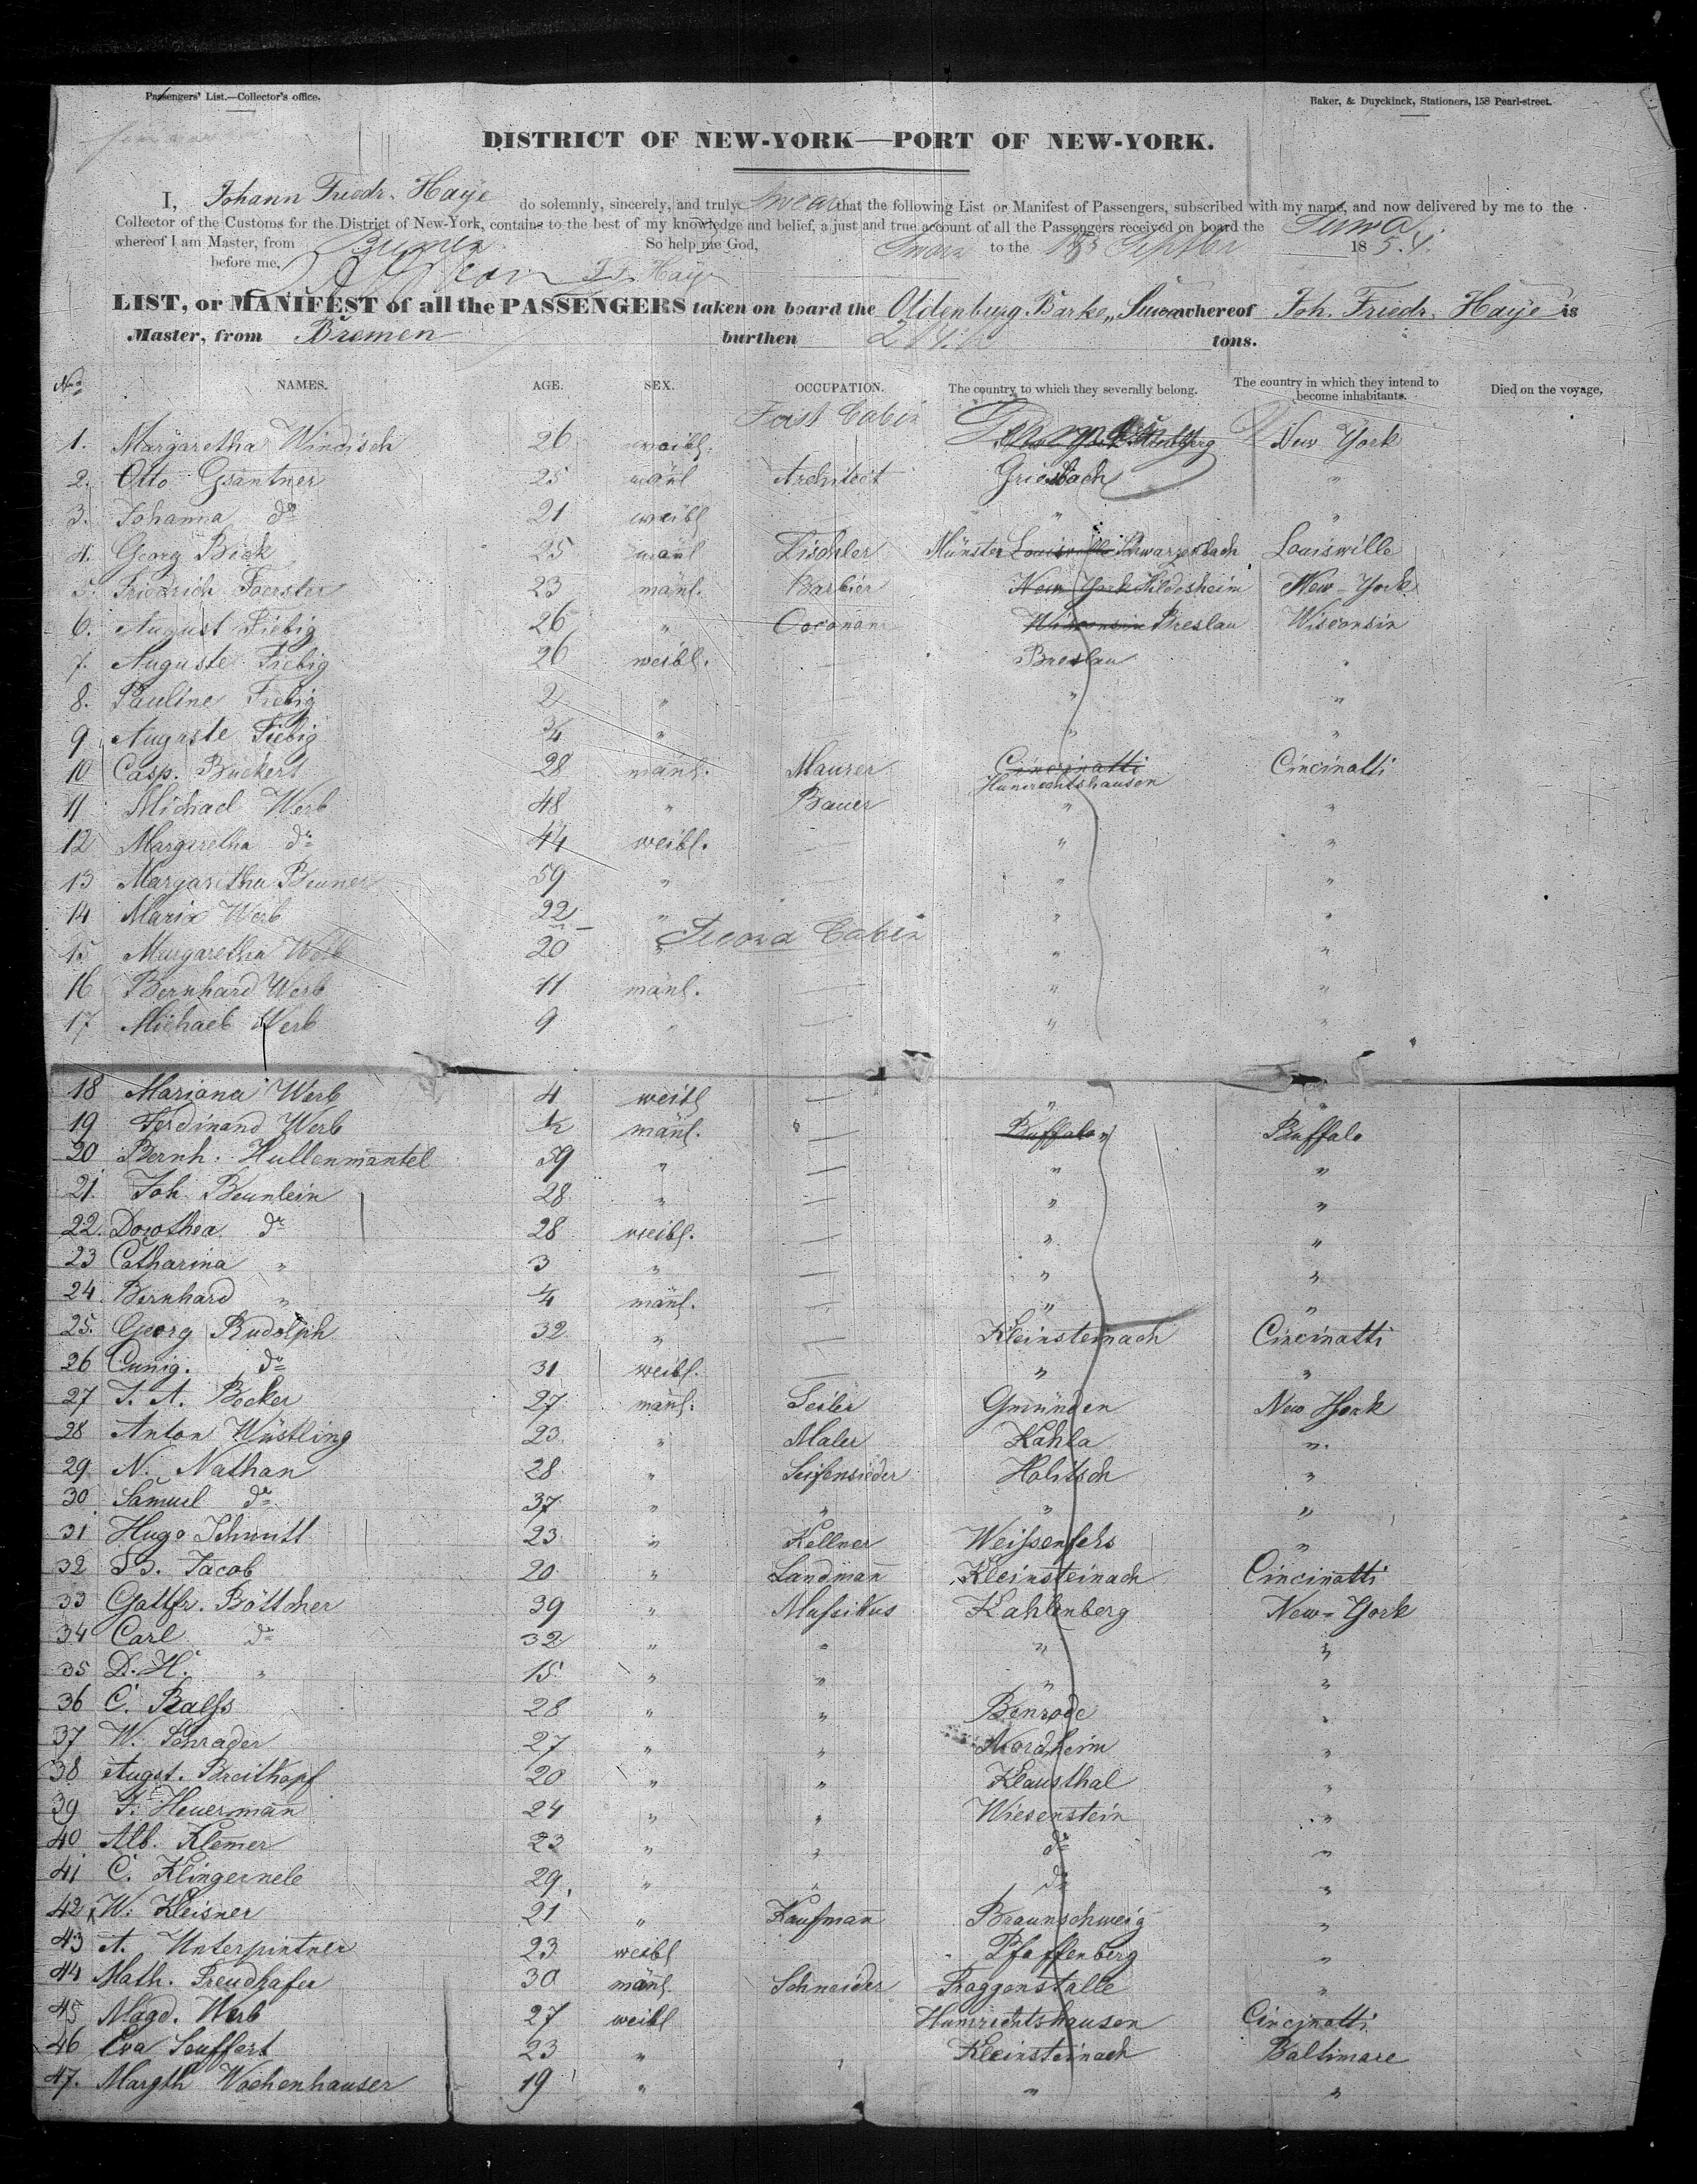 Passengers' List.—Collector's office.
Baker, & Duyckinck, Stationers, 158 Pearl-street.
DISTRICT OF NEW-YORK—PORT OF NEW-YORK.
I, Johann Friedr. Haye do solemnly, sincerely, and truly swear that the following List or Manifest of Passengers, subscribed with my name, and now delivered by me to the
Collector of the Customs for the District of New-York, contains to the best of my knowledge and belief, a just and true account of all the Passengers received on board the
whereof I am Master, from Bremen So help me God, Sworn to the 185
before me, Haye
LIST, or MANIFEST of all the PASSENGERS taken on board the Oldenburg. Barke whereof Joh. Friedr. Haye is
Master, from Bremen burthen tons.
NAMES. AGE. SEX. OCCUPATION. The country to which they severally belong. The country in which they intend to become inhabitants. Died on the voyage,
First Cabin
1. Margaretha Windisch 26 weibl. New York
2. Otto Gsantner 25 mänl Architect Griesbach "
3. Johanna do 21 weibl " "
4. Georg Bick 25 mänl Tischler Münster Louisville Schwarzenbach Louisville
5. Friedrich Foerster 23 mänl. Barbier New York Hildesheim New-York
6. August Fiebig 26 " Oconom Wisconsin Breslau Wisconsin
7. Auguste Fiebig 26 weibl. — Breslau "
8. Pauline Fiebig 2 " " "
9 Auguste Fiebig 3/4 " " "
10 Casp. Bückert 28 mänl. Maurer Cincinatti Cincinatti
Humrechtshausen
11 Michael Werb 48 " Bauer " "
12 Margaretha do 44 weibl. — " "
13 Margaretha Beuner 59 " — " "
14 Maria Werb 22 " " "
Second Cabin
15 Margaretha Werb 20 " " "
16 Bernhard Werb 11 mänl. — " "
17 Michael Werb 9 " — " "
18 Mariana Werb 4 weibl — " "
19 Ferdinand Werb 1/2 mänl. — Buffalo " Buffalo
20 Bernh. Hullenmantel 59 " — " "
21 Joh. Beunlein 28 " — " "
22. Dorothea do 28 weibl. — " "
23 Catharina " 3 " — " "
24 Bernhard " 1/4 mänl. — " "
25. Georg Rudolph 32 " — Kleinsteinach Cincinatti
26 Cunig. do 31 weibl. — " "
27 J. A. Becker 27 mänl. Seiler Gmünden New York
28 Anton Wüstling 23 " Maler Kahla "
29 N. Nathan 28 " Seifensieder Holitsch "
30 Samuel do 37 " " " "
31 Hugo Schmitt 23 " Kellner Weißenfels "
32 B. Jacob 20 " Landman Kleinsteinach Cincinatti
33 Gottfr. Böttcher 39 " Mussikus Kahlenberg New-York
34 Carl do 32 " " " "
35 D. H. " 15 " " " "
36 C. Ralfs 28 " " Benrode "
37 W. Schrader 27 " " Nordheim "
38 Augst. Breithopf 20 " " Klausthal "
39 F. Heuerman 24 " " Wiesenstein "
40 Alb. Klemer 23 " " do "
41 C. Klingernele 29 " " do "
42 W. Kleisner 21 " Kaufman Braunschweig "
43 A. Unterpintner 23 weibl Pfaffenberg "
44 Math. Freudhafer 30 mänl. Schneider Roggonstalle "
45 Magd. Werb 27 weibl Humrechtshausen Cincinatti
46 Eva Seuffert 23 " Kleinsteinach Baltimare
47. Margth Wachenhauser 19 " " "